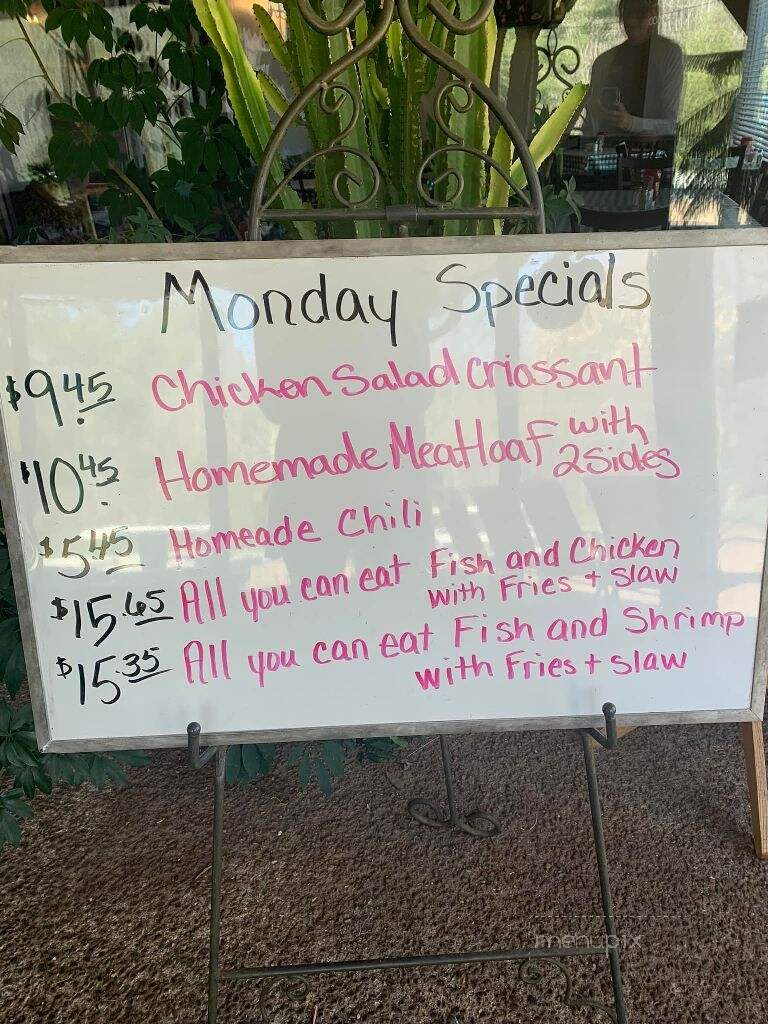 Monday Specials
$9.45 Chicken Salad Criossant
$10.45 Homemade Meatloaf with 2 Sides
$5.45 Homeade Chili
$15.65 All you can eat Fish and Chicken
with Fries + slaw
$15.35 All you can eat Fish and Shrimp
with Fries + slaw
menupix